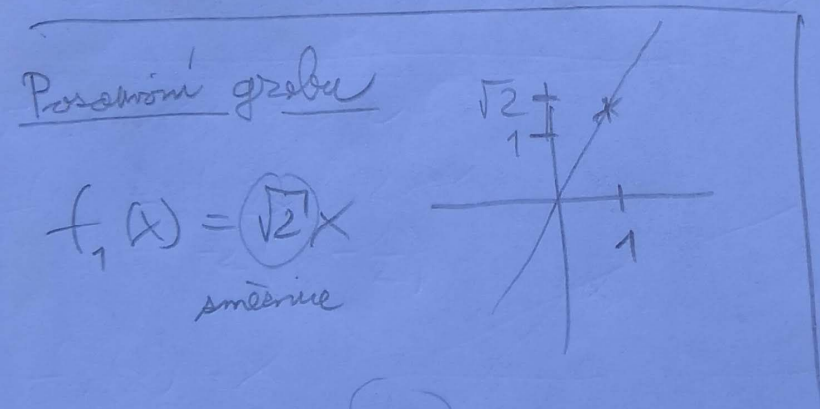 Posouvání grafu
f₁(x) = √2 x
směrnice
√2
1
1